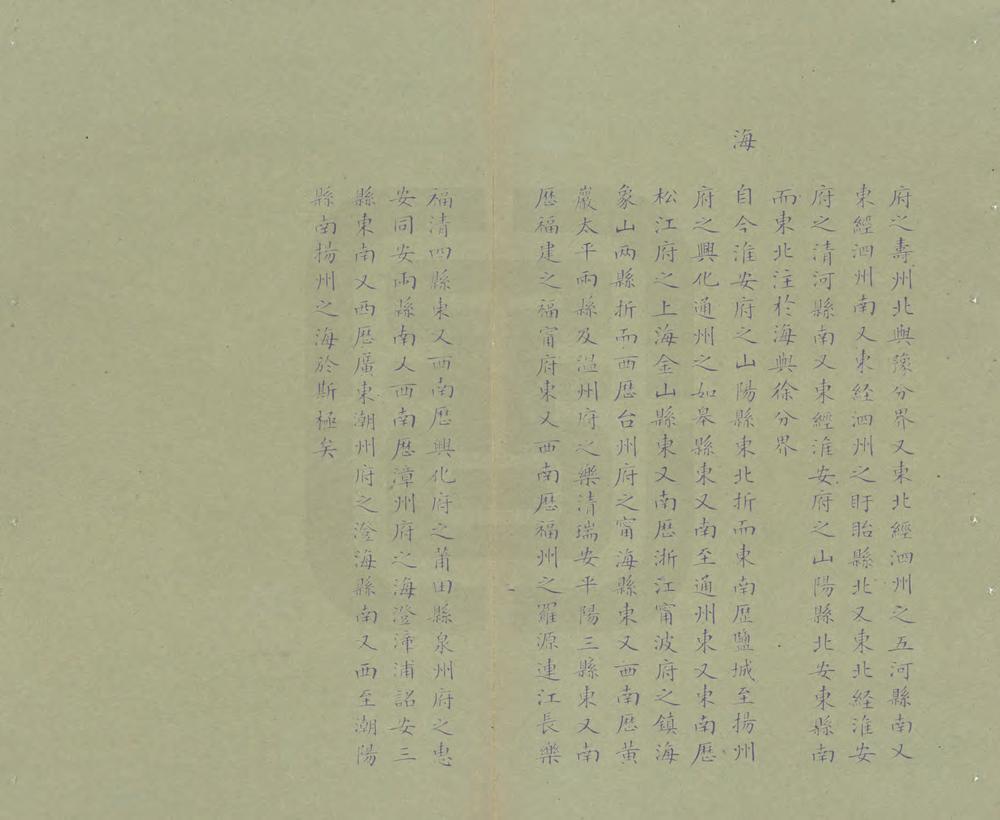 府之壽州北與豫分界又東北經泗州之五河縣南又
東經泗州南又東经泗州之盱眙縣北又東北経淮安
府之清河縣南又東經淮安府之山陽縣北安東縣南
而東北注於海與徐分界
海
自今淮安府之山陽縣東北折而東南歴鹽城至揚州
府之興化通州之如皋縣東又南至通州東又東南歴
松江府之上海金山縣東又南歴浙江甯波府之鎮海
象山两縣折而西歴台州府之甯海縣東又西南歴黄
巖太平兩縣及温州府之樂清瑞安平陽三縣東又南
歴福建之福甯府東又西南歴福州之羅源連江長樂
福清四縣東又西南歴興化府之莆田縣泉州府之惠
安同安兩縣南又西南歴漳州府之海澄漳浦詔安三
縣東南又西歴廣東潮州府之澄海縣南又西至潮陽
縣南揚州之海於斯極矣